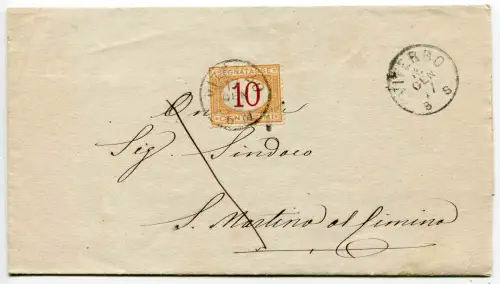 VITERBO
GEN
77
8 S
SEGNATASSE
10
CENTESIMI
Sig Sindaco
S. Martino al Cimino